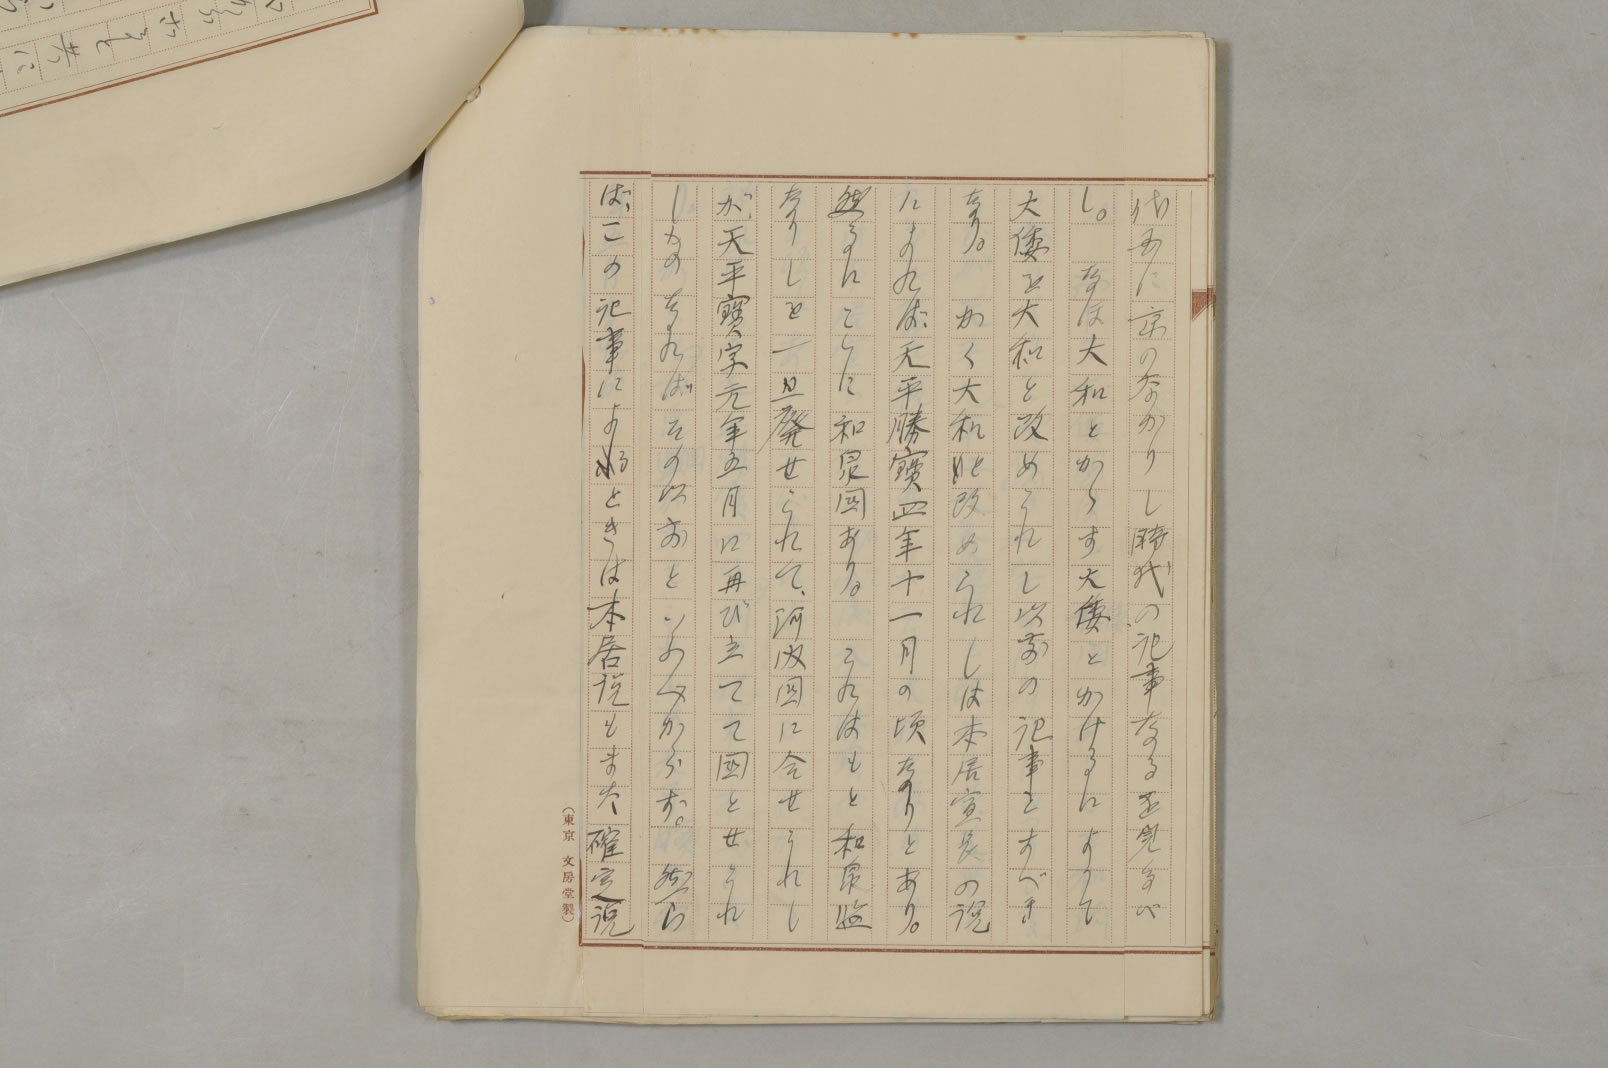 代畄に京のなかりし時代の記事なるを見るべ
し。なほ大和とかゝず大倭とかけるによりて
大倭を大和と改められし以前の記事とすべき
なり。かく大和と改められしは本居宣長の説
によれば天平勝寳四年十一月の頃なりとあり。
然るにこゝに和泉国あり。これはもと和泉監
なりしを一旦廃せられて、河内国に合せられし
が、天平寳字元年五月に再び立てて国とせられ
しものなればその以前といふべからず。然ら
ば、この記事によるときは本居説もまた確定説
(東京 文房堂製)